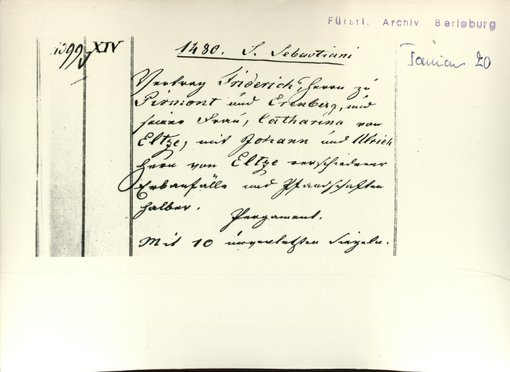 Fürstl. Archiv Berleburg
1480. S. Sebastiani
Januar 20
XIV
Vertrag Friderich, Herrn zu
Pirmont und Erenberg, und
seiner Frau, Catharina von
Eltze, mit Johann und Ulrich
Herrn von Eltze verschiedener
Erbanfälle und Pfandschaften
halber.
Pergament.
Mit 10 unverletzten Siegeln.